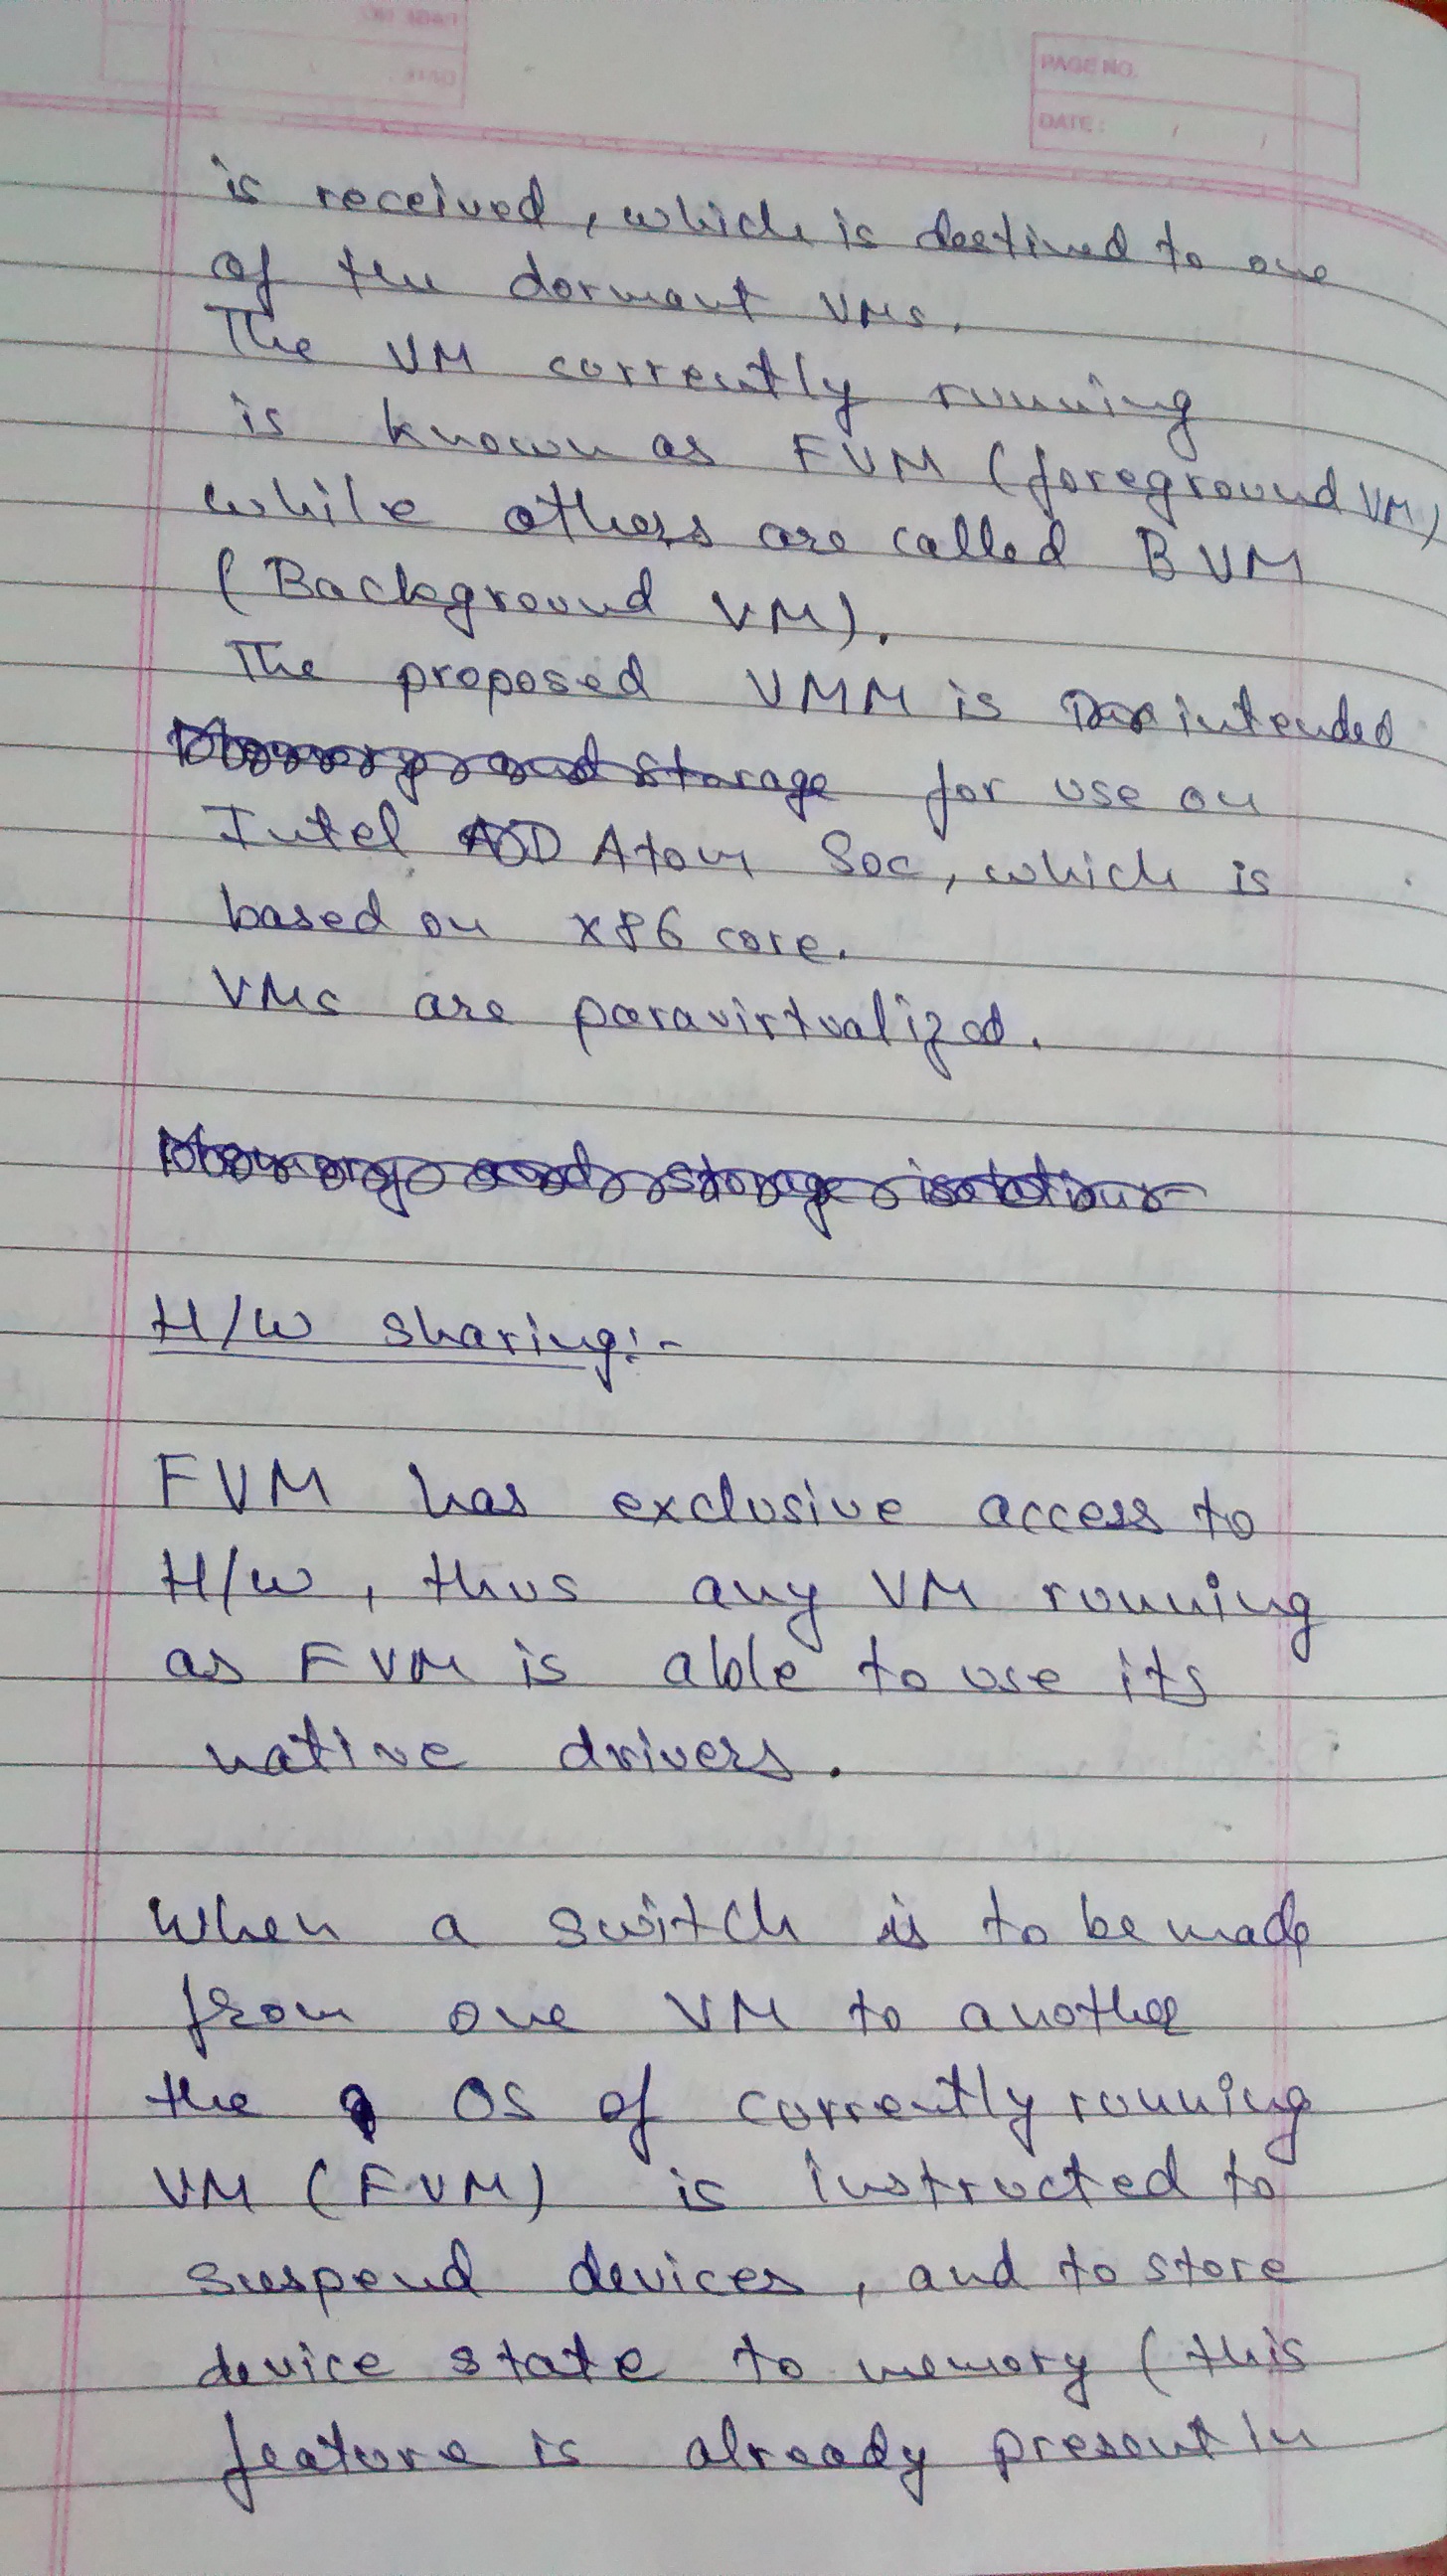 PAGE NO.
DATE: / /
is received, which is destined to one
of the dormant VMs.
The VM currently running
is known as FVM (foreground VM)
while others are called BVM
(Background VM).
The proposed VMM is intended
Memory and storage for use on
Intel Atom Soc, which is
based on x86 core.
VMs are paravirtualized.
Memory and storage isolation
H/W sharing:-
FVM has exclusive access to
H/W, thus any VM running
as FVM is able to use its
native drivers.
When a switch is to be made
from one VM to another
the OS of currently running
VM (FVM) is instructed to
suspend devices, and to store
device state to memory (this
feature is already present in